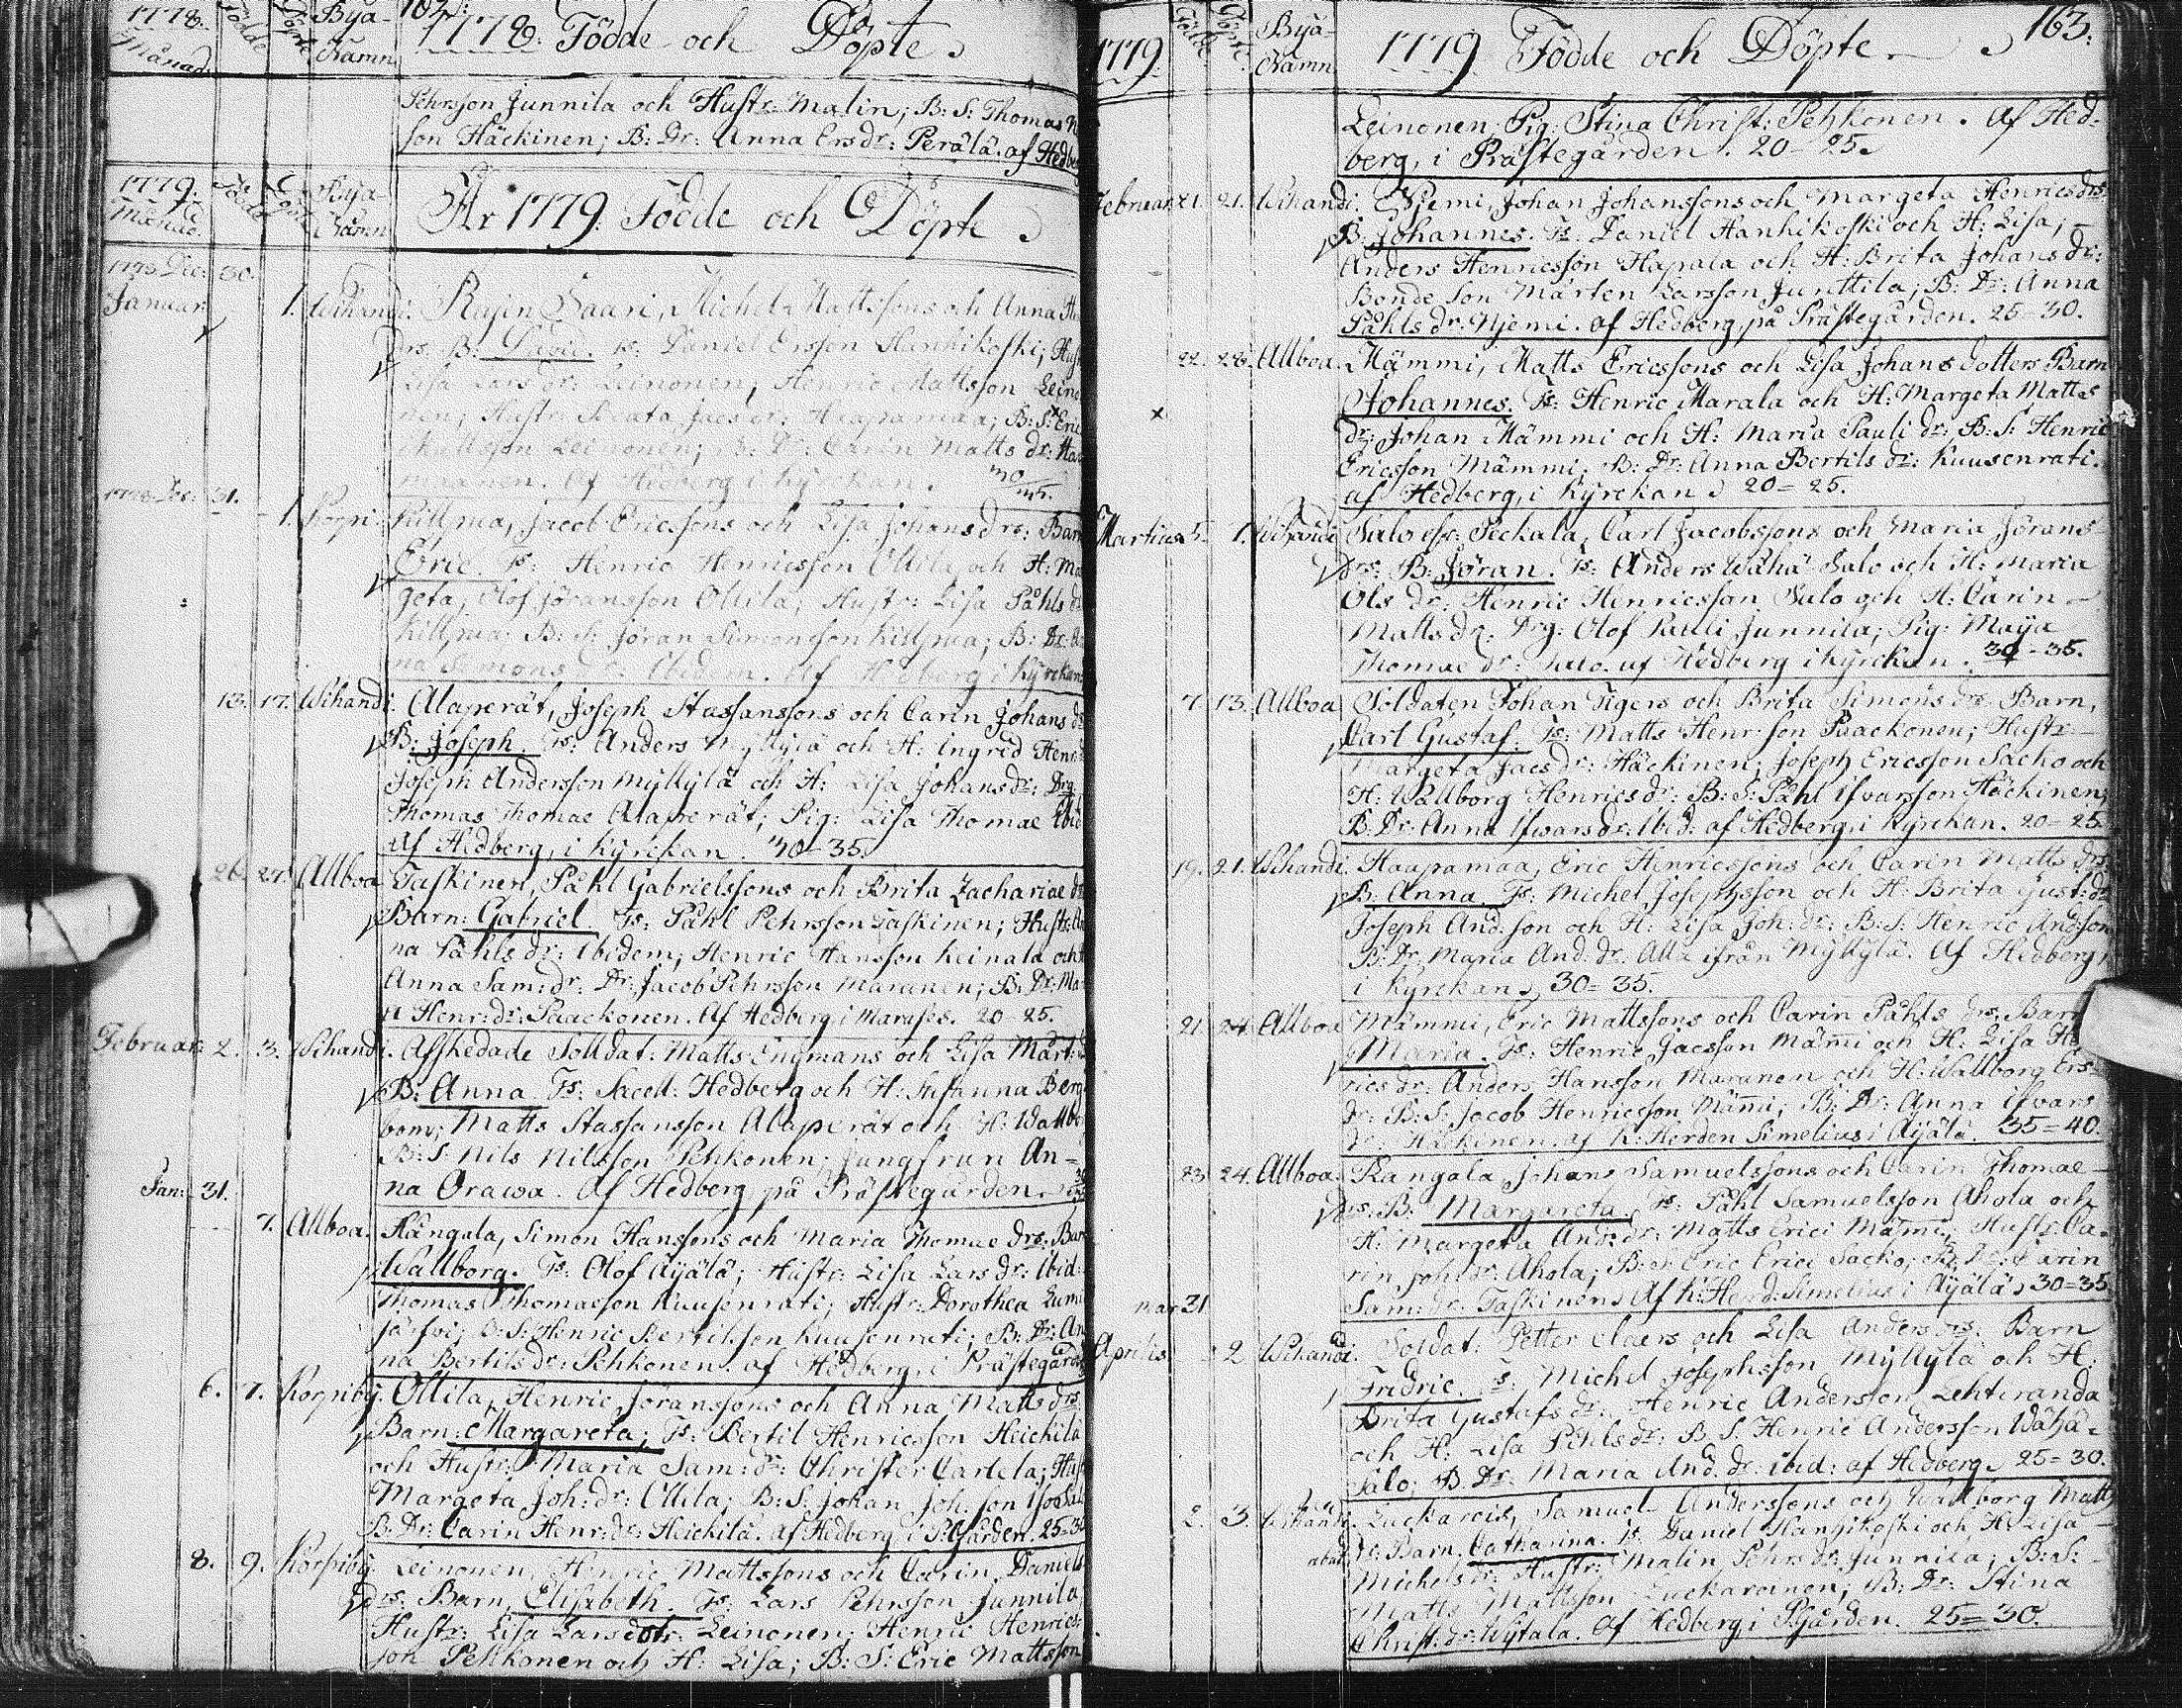 1778. Födde Döpte Bya- 162:
Månad. Namn 1778: Födde och Döpte.
Pehrsson Junnila och Hustr: Malin; B: S: Thomas
son Häckinen; B: Dr: Anna Ersdr: Perälä. af Hedberg
1779. Födde Döpte Bya-
Månad. Namn År 1779: Födde och Döpte
1778 Dec: 30.
Januar. 1. Wihandi. Rajin Saari, Michel Mattssons och Anna
drs. B: David. Fs: Daniel Ersson Hanhikoski; Hustr
Lisa Lars dr: Leinonen; Henric Mattsson Leino
nen; Hustr: Beata Jacs dr: Haapamaa; B: S: Eric
Mattsson Leinonen; B: Dr: Carin Matts dr:
maanen. Af Hedberg i Kyrckan. 30/35.
1778 Dec: 31.
1. Korpi. Killjma, Jacob Ericssons och Lisa Johans drs: Barn
Eric. Fs: Henric Henricsson Ollila och H: Mar
geta; Olof Jöransson Ollila; Hustr: Lisa Påhls dr
Killjma; B: S: Jöran Simonsson Killjma; B: Dr: An
na Simons dr: Ibidem. Af Hedberg i Kyrckan
13. 17. Wihandi. Alaperät, Joseph Staffanssons och Carin Johans dr
B: Joseph. Fs: Anders Myllylä och H: Ingred Henr:
Joseph Andersson Myllylä och H: Lisa Johans dr: Drg:
Thomas Thomae Alaperät; Pig: Lisa Thomae Ibid
af Hedberg, i Kyrckan. 30-35.
26. 27. Allboa Taskinen, Påhl Gabrielssons och Brita Zachariae dr
Barn: Gabriel. Fs: Påhl Pehrsson Taskinen; Hustr: An
na Påhls dr: Ibidem; Henric Hansson Keinälä och
Anna Sam: dr: Dr: Jacob Pehrsson Maranen; B: Dr: Ma
Henr: dr: Paackonen. Af Hedberg, i Marases. 20-25.
Februar: 2. 3. Wihandi. Afskedade Solldat: Matts Engmans och Lisa Mårt:
B: Anna Fs: Sacell: Hedberg och H: Susanna Berg
bom; Matts Staffansson Alaperät och H: Wallbor
B: S: Nils Nilsson Pehkonen; Jungfrun An=
na Orawa. Af Hedberg på Prästegården.
Jan: 31.
7. Allboa. Kångala, Simon Hanssons och Maria Thomae drs: Bar
Wallborg. Fs: Olof Äijälä; Hustr: Lisa Lars dr: Ibid:
Thomas Thomasson Kuusenrati; Hustr: Dorothea Lumi
järfvi; B: S: Henric Bertilsson Kuusenrati; B: Dr: An
na Bertils dr: Pehkonen. af Hedberg, i Prästegården
6. 7. Korpiby. Ollila, Henric Jöranssons och Anna Matts drs
Barn: Margareta; Fs: Bertil Henricsson Heickilä
och Hustr: Maria Sam: dr: Christer Cartela; Hust
Margeta Joh: dr: Ollila; B: S: Johan Joh: son Iso Salo
B: Dr: Carin Henr: dr: Heickilä. af Hedberg i P:gården. 25-30
8. 9. Korpiby. Leinonen, Henric Mattssons och Carin Daniels
drs: Barn, Elisabeth. Fs: Lars Pehrsson Junnila,
Hustr: Lisa Larsdotr: Leinonen; Henric Henrics
son Pehkonen och H: Lisa; B: S: Eric Mattsson
1779. Födde Döpte Bya-
Namn 1779 Födde och Döpte. 163.
Leinonen; Pig: Stina Christ: Pehkonen. Af Hed:
berg, i Prästegården. 20-25.
Februar: 21. 21. Wihandi. Njemi, Johan Johanssons och Margeta Henrics drs:
B: Johannes. Fs: Daniel Hanhikoski och H: Lisa;
Anders Henricsson Hapala och H: Brita Johans dr:
Bonde Son Mårten Larsson Junttila; B: Dr: Anna
Påhls dr: Njemi. af Hedberg, på Prästegården. 25-30.
22. 28. Allboa. Mämmi, Matts Ericssons och Lisa Johans dotters Barn
Johannes. Fs: Henric Marala och H: Margeta Matts
dr: Johan Mämmi och H: Maria Pauli dr: B: S: Henric
Ericsson Mämmi; B: Dr: Anna Bertils dr: Kuusenrati.
af Hedberg, i Kyrckan. 20-25.
Martius 5. 7. Wihandi Salo eft: Peckala, Carl Jacobssons och Maria Jörans
drs: B: Jöran. Fs: Anders Wähä Salo och H: Maria
Ols dr: Henric Henricsson Salo och H: Carin
Matts dr: Drg: Olof Pauli Junnila; Pig: Maija
Thomae dr: Salo. af Hedberg i Kyrckan. 30-35.
7. 13. Allboa Soldaten Johan Tigers och Brita Simons drs: Barn,
Carl Gustaf. Fs: Matts Henr: son Paackonen; Hustr:
Margeta Jacs dr: Häckinen; Joseph Ericsson Sacko och
H: Wallborg Henrics dr: B: S: Påhl Ifvarsson Häckinen;
B: Dr: Anna Ifwars dr: Ibid: af Hedberg, i Kyrckan. 20-25.
19. 21. Wihandi. Haapamaa, Eric Henricssons och Carin Matts drs
B: Anna. Fs: Michel Josephsson och H: Brita Gust: dr
Joseph And: son och H: Lisa Joh: dr: B: S: Henric And: son
B: Dr: Maria And: dr: Alla ifrån Myllylä. Af Hedberg,
i Kyrckan. 30-35.
21. 24. Allboa Mämmi, Eric Mattssons och Carin Påhls drs: Bar
Maria. Fs: Henric Jacsson Mämmi och H: Lisa He
rics dr: Anders Hansson Maranen och H: Wallborg Ers
dr: B: S: Jacob Henricsson Mämmi; B: Dr: Anna Ifvars
dr: Häckinen. af K: Herden Simelius i Äijälä. 35=40.
23. 24. Allboa. Kangala, Johans Samuelssons och Carin Thomae
drs: B: Margareta. Fs: Påhl Samuelsson Ahola och
H: Margeta And: dr: Matts Erici Mämmi; Hustr: Ca=
rin Joh: dr: Ahola; B: S: Eric Erici Sacko; B: Dr: Carin
Sam: dr: Taskinen. Af K: Herd: Simelius i Äijälä. 30=35
mar 31
Aprilis 2 Wihandi. Soldat: Petter Claers och Lisa Anders drs: Barn
Fredric. Fs: Michel Josephsson Myllylä och H:
Brita Gustafs dr: Henric Andersson Lehteranda
och H: Lisa Påhls dr: B: S: Henric Andersson Wähä=
Salo; B: Dr: Maria And: dr: ibid: af Hedberg. 25=30.
2. 3. Wihandi. Luckarois, Samuel Anderssons och Wallborg Matts
dr: Barn, Catharina. Fs: Daniel Hanhikoski och H: Lisa
Michels dr: Hustr: Malin Pehrs dr: Junnila; B: S:
Matts Mattsson Luckaroinen; B: Dr: Stina
Christ: dr: Wijtala. Af Hedberg, i P:gården. 25=30.